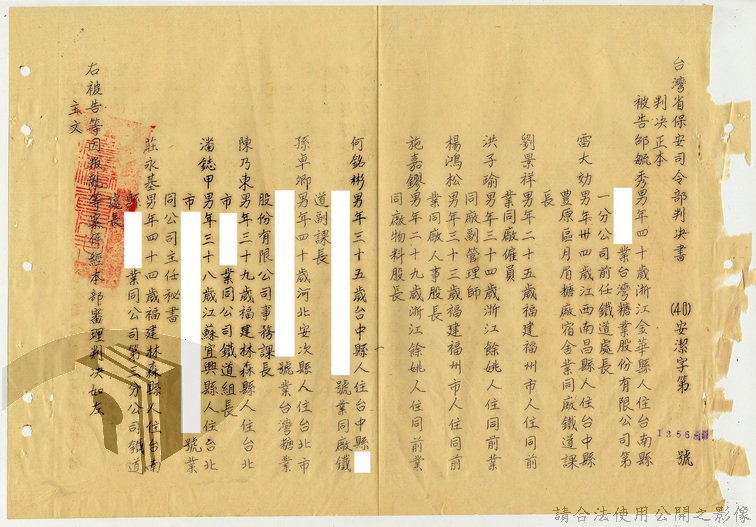 台灣省保安司令部判決書 (40)安潔字第1356號
判決正本
被告邰毓秀男年四十歲浙江金華縣人住台南縣
業台灣糖業股份有限公司第
一分公司前任鐵道處長
雷大効男年卅四歲江西南昌縣人住台中縣
豐原區月眉糖廠宿舍業同廠鐵道課
長
劉景祥男年二十五歲福建福州市人住同前
業同廠僱員
洪子瑜男年三十四歲浙江餘姚人住同前業
同廠副管理師
楊鴻松男年三十三歲福建福州市人住同前
業同廠人事股長
施嘉鏐男年二十九歲浙江餘姚人住同前業
同廠物料股長
何銘彬男年三十五歲台中縣人住台中縣
號業同廠鐵
道副課長
孫卓卿男年四十歲河北安次縣人住台北市
號業台灣糖業
股份有限公司事務課長
陳乃東男年三十九歲福建林森縣人住台北
市 業同公司鐵道組長
潘鋕甲男年三十八歲江蘇宜興縣人住台北
市 號業
同公司主任秘書
莊永基男年四十四歲福建林森縣人住台南
縣 業同公司第三分公司鐵道
處長
右被告等因叛亂等案件經本部審理判決如左
主文
請合法使用公開之影像